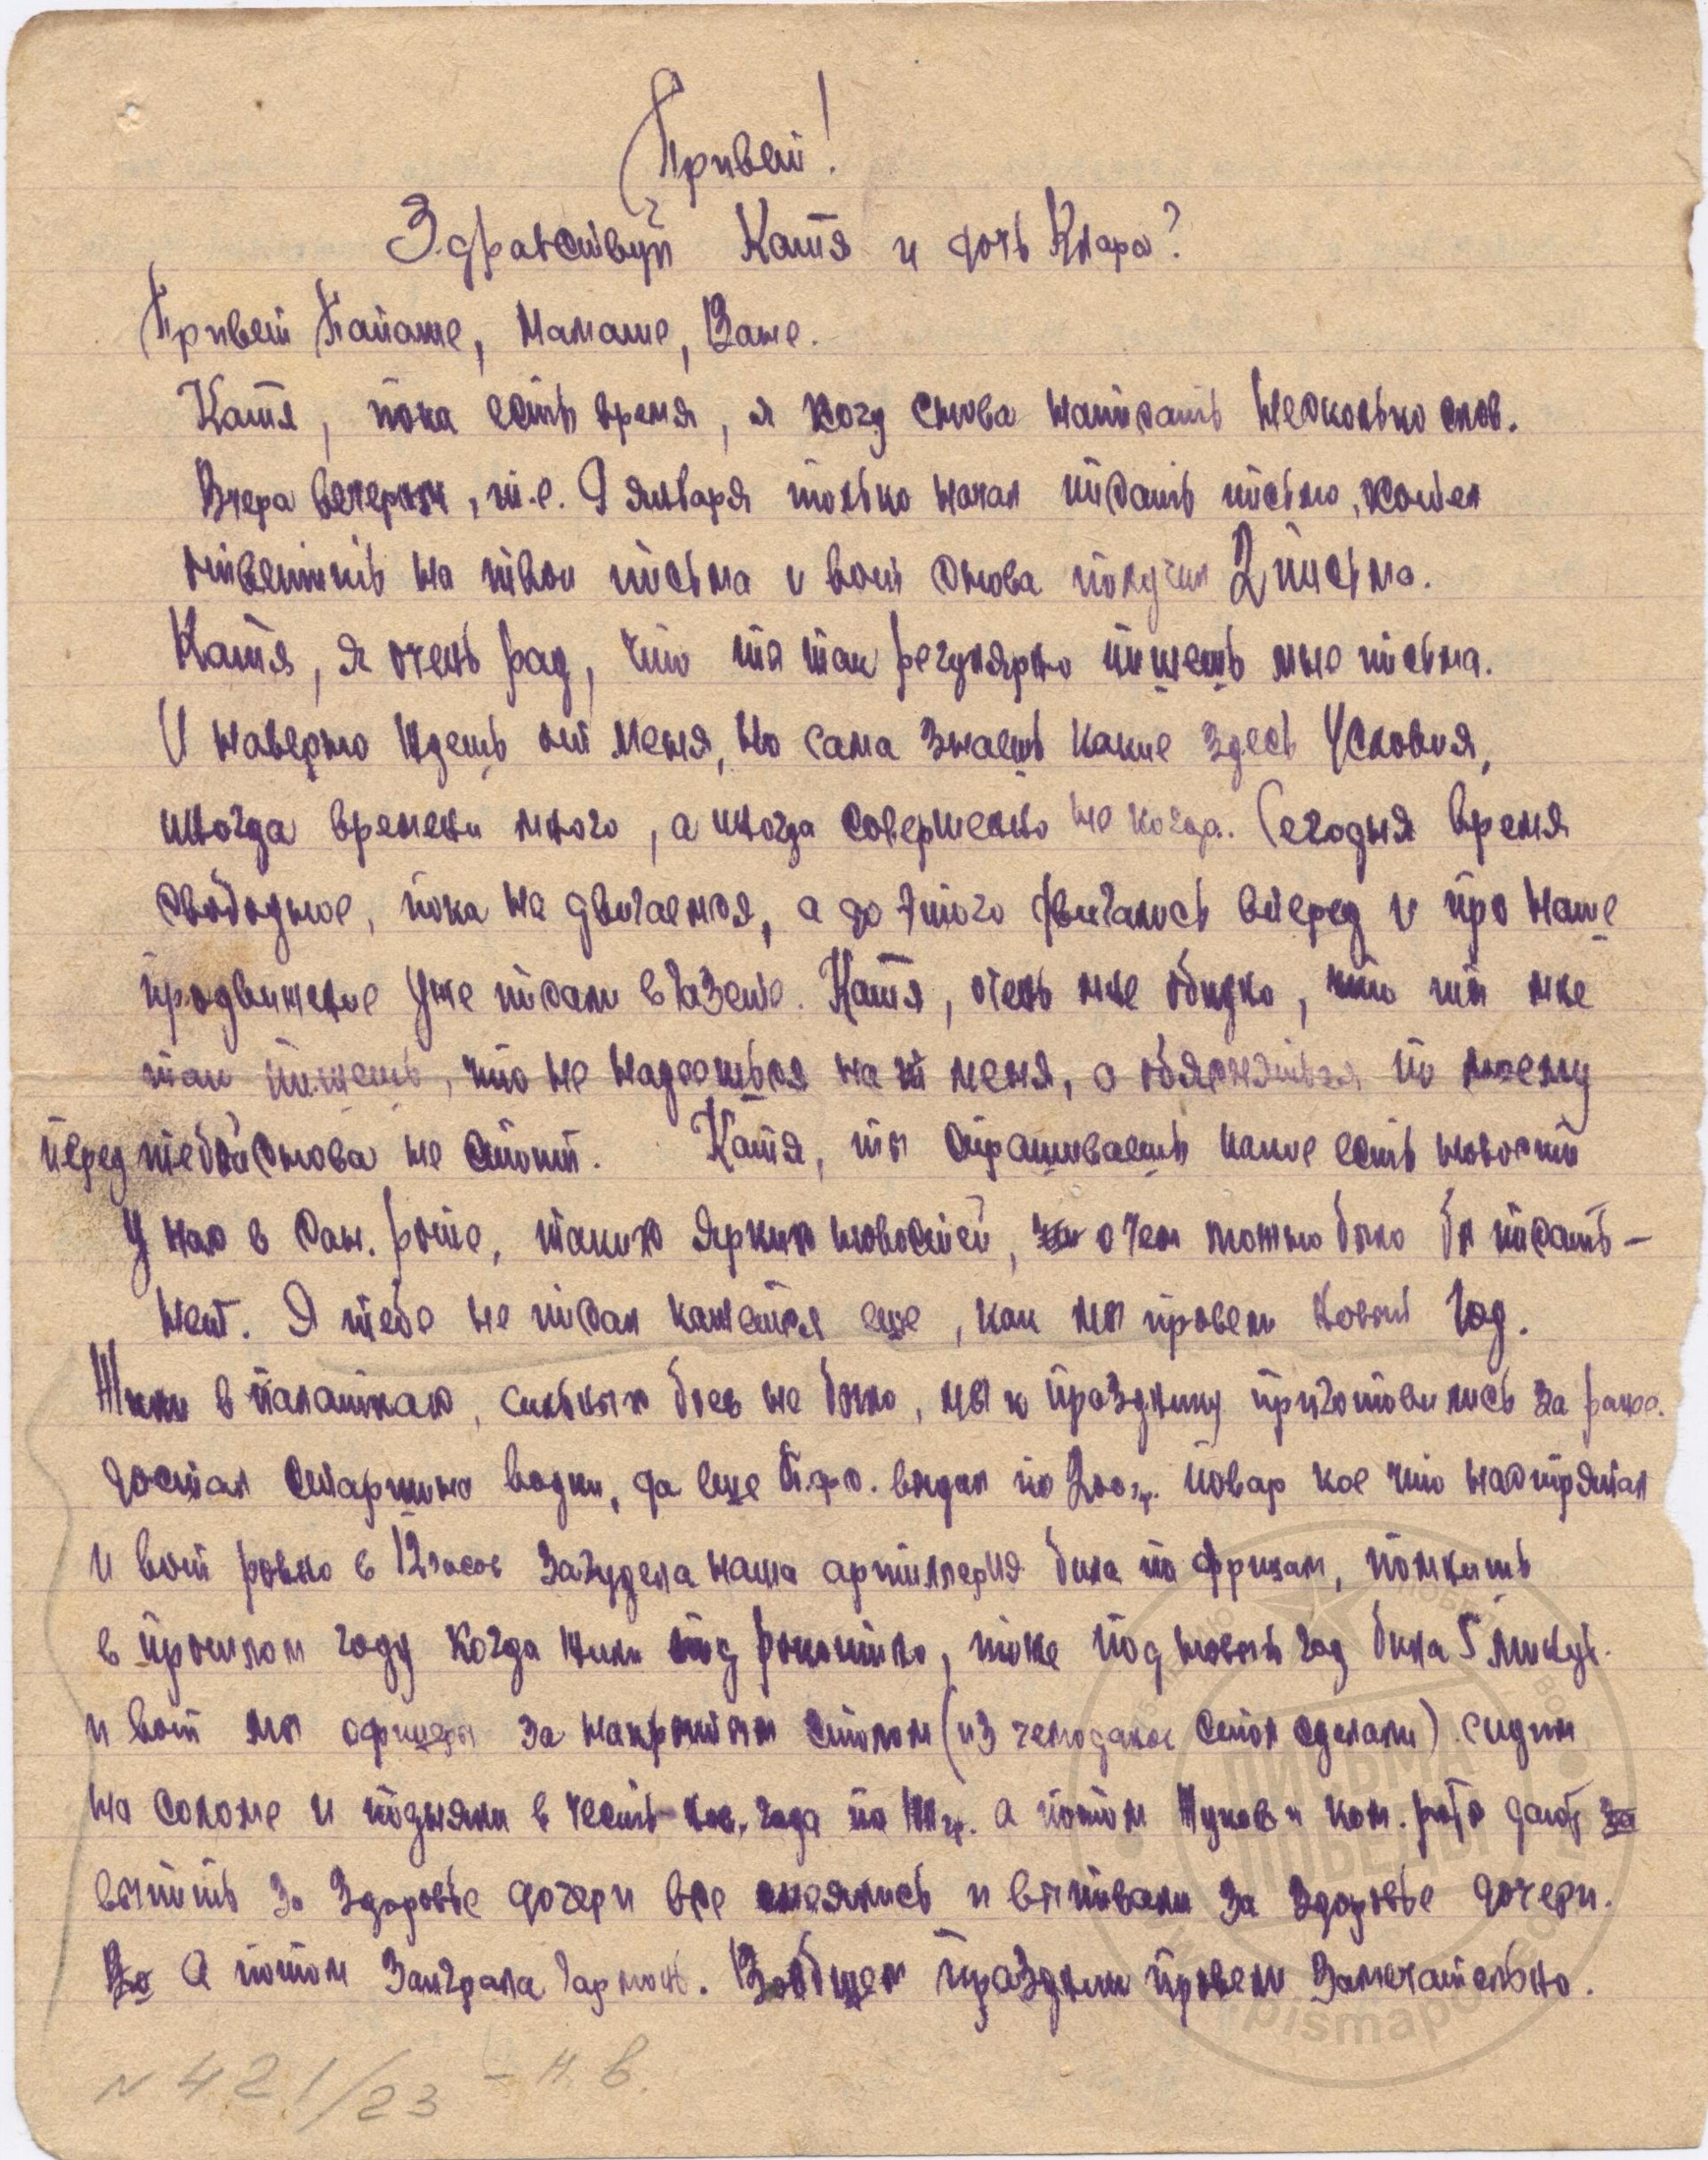 Привет!
Здравствуй Катя и дочь Клара?
Привет Папаше, Мамаше, Ване.
Катя, пока есть время, я хочу снова написать несколько слов.
Вчера вечером, т.е. 9 января только начал писать письмо, хотел
ответить на твои письма и вот снова получил 2 письма.
Катя, я очень рад, что ты так регулярно пишешь мне письма.
И наверно ждешь от меня, но сама знаешь какие здесь условия,
иногда времени много, а иногда совершенно не когда. Сегодня время
свободное, пока не двигаемся, а до этого двигались вперед и про наше
продвижение уже писали в газете. Катя, очень мне обидно, что ты мне
так пишешь, что не надеешься на меня, а объясняться по моему
перед тебой снова не стоит. Катя, ты спрашиваешь какие есть новости
у нас в сан. роте, таких ярких новостей, о чем можно было бы писать –
нет. Я тебе не писал кажется еще, как мы провели новый год.
Жили в палатках, сильных боев не было, мы к празднику приготовились за ране.
достал старшина водки, да еще п.ф.с. выдал по 200 гр. повар кое что настряпал
и вот ровно в 12 часов загудела наша артиллерия била по фрицам, помнить
в прошлом году когда жили под , тоже под новый год била 5 минут.
и вот мы офицеры за накрытым столом (из чемоданов стол сделали) сидим
на соломе и подняли в честь нов. года по гр. а потом Жуков и ком. роты дают за
выпить за здоровье дочери все смеялись и выпивали за здоровье дочери.
Во А потом заиграла гармонь. Вообщем праздник провели замечательно.
N 421/23 – н. в.
ПИСЬМА
ПОБЕДЫ